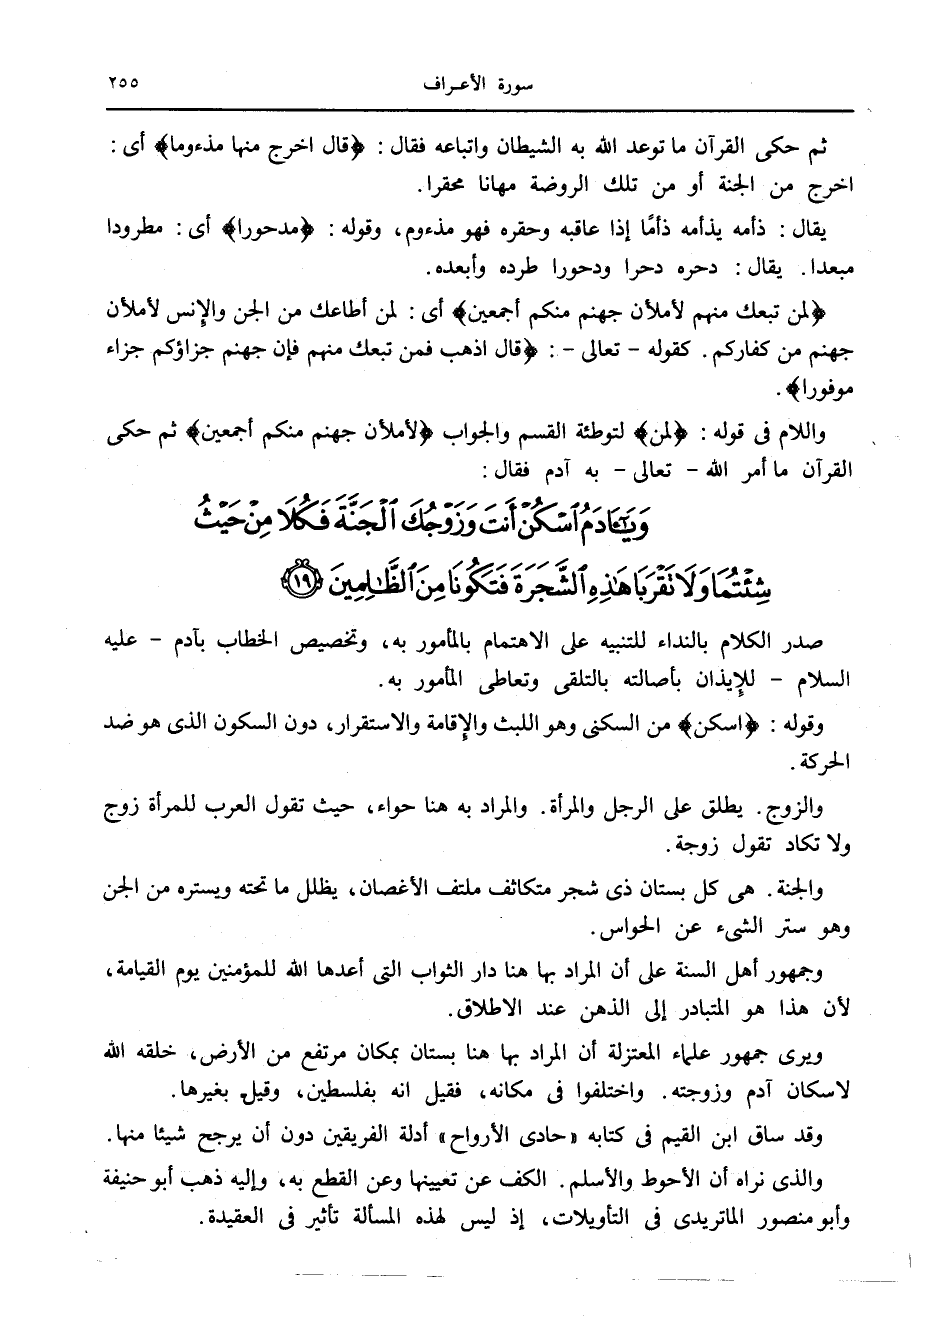 سورة الأعراف ٢٥٥
ثم حكى القرآن ما توعد الله به الشيطان واتباعه فقال : ﴿قال اخرج منها مذءوما﴾ أى :
اخرج من الجنة أو من تلك الروضة مهانا محقرا.
يقال : ذأمه يذأمه ذأمًا إذا عاقبه وحقره فهو مذءوم، وقوله : ﴿مدحورا﴾ أى : مطرودا
مبعدا. يقال : دحره دحرا ودحورا طرده وأبعده.
﴿لمن تبعك منهم لأملأن جهنم منكم أجمعين﴾ أى : لمن أطاعك من الجن والإنس لأملأن
جهنم من كفاركم. كقوله - تعالى - : ﴿قال اذهب فمن تبعك منهم فإن جهنم جزاؤكم جزاء
موفورا﴾.
واللام فى قوله : ﴿لمن﴾ لتوطئة القسم والجواب ﴿لأملأن جهنم منكم أجمعين﴾ ثم حكى
القرآن ما أمر الله - تعالى - به آدم فقال :
وَيَٰٓـَٔادَمُ ٱسْكُنْ أَنتَ وَزَوْجُكَ ٱلْجَنَّةَ فَكُلَا مِنْ حَيْثُ
شِئْتُمَا وَلَا تَقْرَبَا هَٰذِهِ ٱلشَّجَرَةَ فَتَكُونَا مِنَ ٱلظَّٰلِمِينَ ١٩
صدر الكلام بالنداء للتنبيه على الاهتمام بالمأمور به، وتخصيص الخطاب بآدم - عليه
السلام - للإيذان بأصالته بالتلقى وتعاطى المأمور به.
وقوله : ﴿اسكن﴾ من السكنى وهو اللبث والإقامة والاستقرار، دون السكون الذى هو ضد
الحركة.
والزوج. يطلق على الرجل والمرأة. والمراد به هنا حواء، حيث تقول العرب للمرأة زوج
ولا تكاد تقول زوجة.
والجنة. هى كل بستان ذى شجر متكاثف ملتف الأغصان، يظلل ما تحته ويستره من الجن
وهو ستر الشىء عن الحواس.
وجمهور أهل السنة على أن المراد بها هنا دار الثواب التى أعدها الله للمؤمنين يوم القيامة،
لأن هذا هو المتبادر إلى الذهن عند الاطلاق.
ويرى جمهور علماء المعتزلة أن المراد بها هنا بستان بمكان مرتفع من الأرض، خلقه الله
لاسكان آدم وزوجته. واختلفوا فى مكانه، فقيل انه بفلسطين، وقيل بغيرها.
وقد ساق ابن القيم فى كتابه «حادى الأرواح» أدلة الفريقين دون أن يرجح شيئا منها.
والذى نراه أن الأحوط والأسلم. الكف عن تعيينها وعن القطع به، وإليه ذهب أبو حنيفة
وأبو منصور الماتريدى فى التأويلات، إذ ليس لهذه المسألة تأثير فى العقيدة.